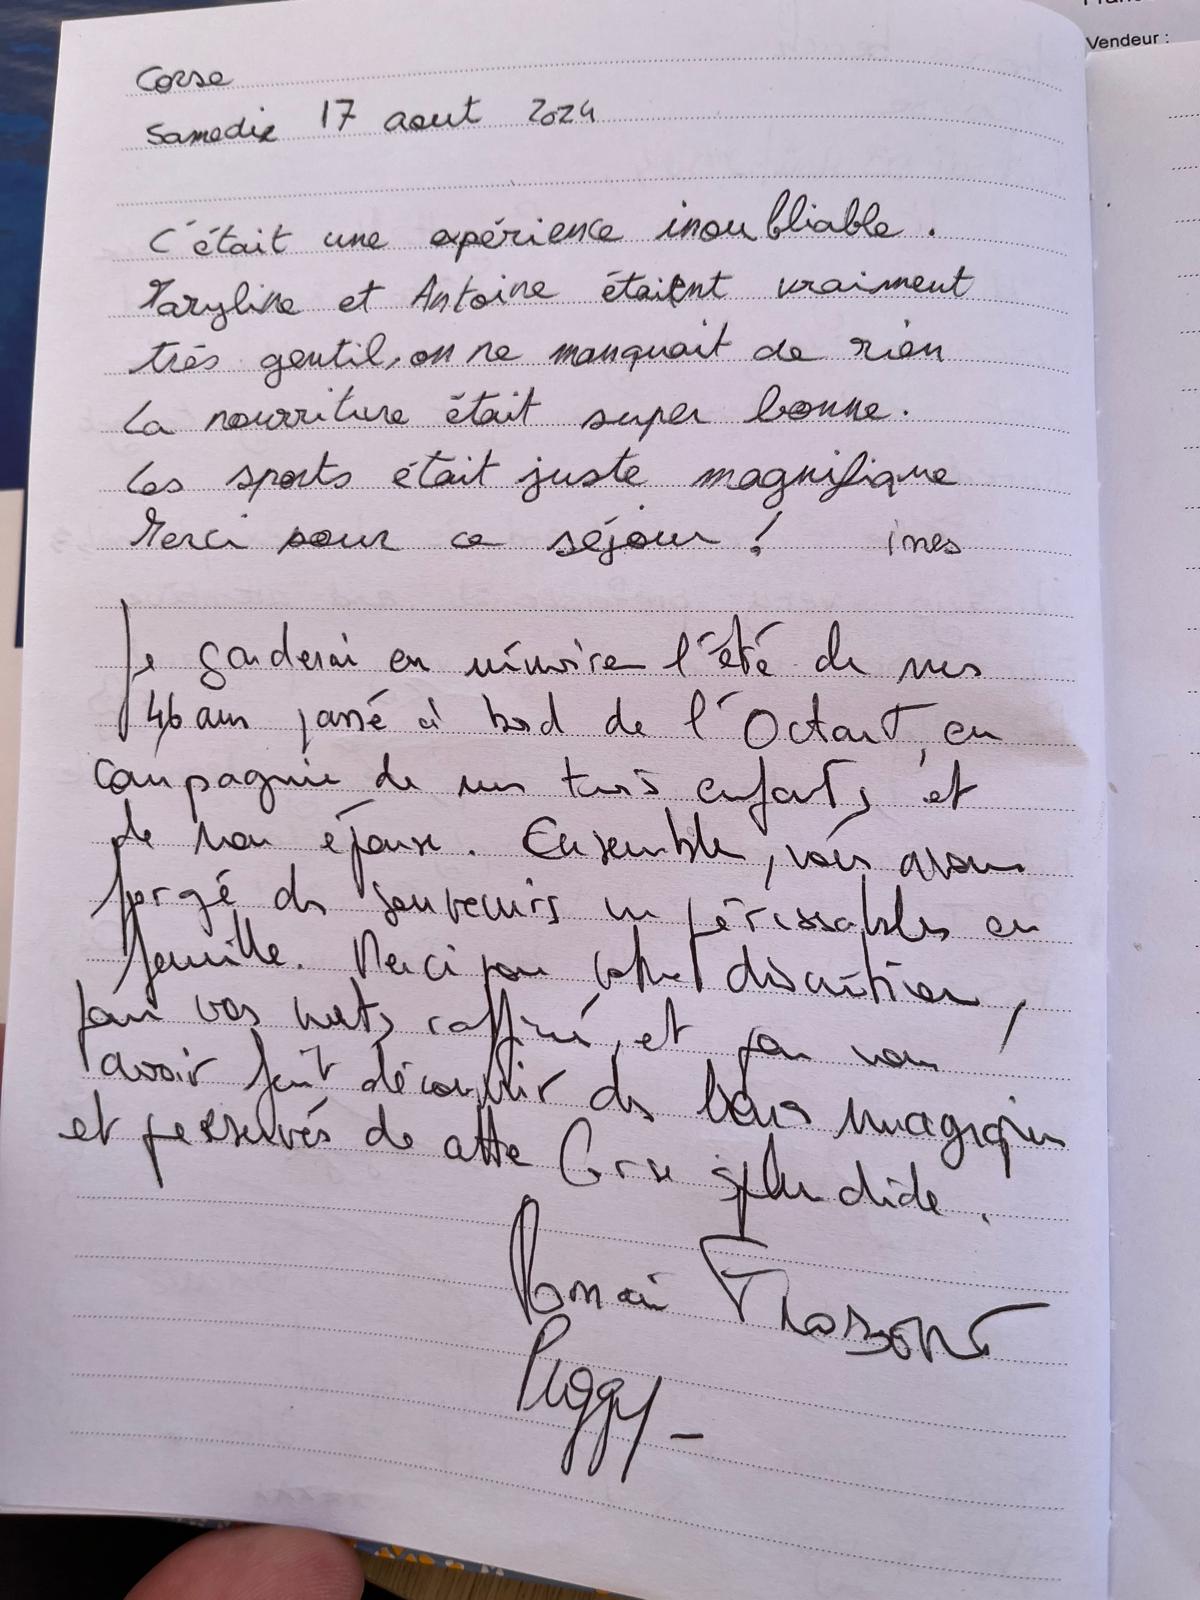 Vendeur :
Corse
Samedi 17 aout 2024
C'était une expérience inoubliable.
Maryline et Antoine étaient vraiment
très gentil, on ne manquait de rien
La nourriture était super bonne.
Les sports était juste magnifique
Merci pour ce séjour ! ines
Je garderai en mémoire l'été de mes
46 ans passé à bord de l'Octant, en
compagnie de mes trois enfants, et
de mon épouse. Ensemble, nous avons
forgé des souvenirs impérissables en
famille. Merci pour votre discrétion,
pour vos mets raffinés, et pour nous
avoir fait découvrir des lieux magiques
et préservés de cette Corse splendide.
Romain
Peggy -